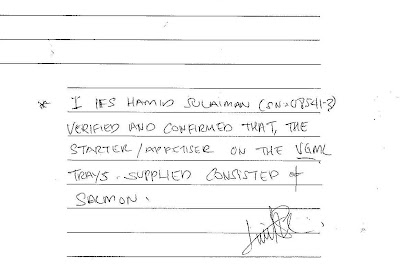 * I IFS HAMID SULAIMAN
VERIFIED AND CONFIRMED THAT, THE
STARTER/APPETISER ON THE VGML
TRAYS. SUPPLIED CONSISTED of
SALMON.